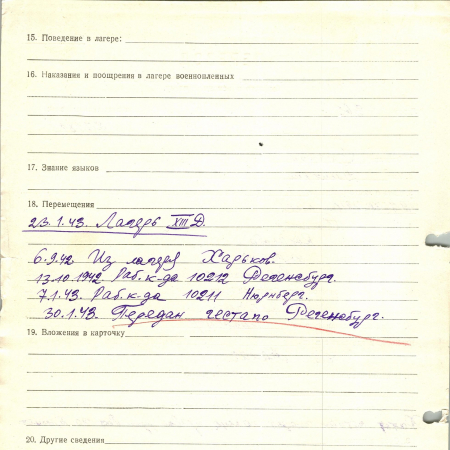 15. Поведение в лагере:
16. Наказания и поощрения в лагере военнопленных
17. Знание языков
18. Перемещения
23.1.43. Лагерь XIII Д.
6.9.42 Из лагеря Харьков.
13.10.1942 Раб. к-да 10212 Регенсбург.
7.1.43. Раб. к-да 10211 Нюрнберг.
30.1.43. Передан гестапо Регенсбург.
19. Вложения в карточку
20. Другие сведения